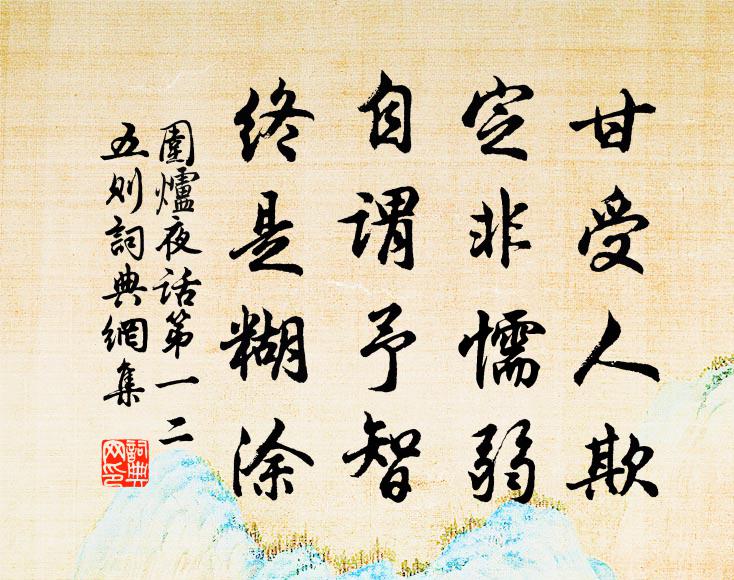 甘受人欺
定非懦弱
自谓予智
终是糊涂
围爐夜话第一二
五则词典網集
詞典网印